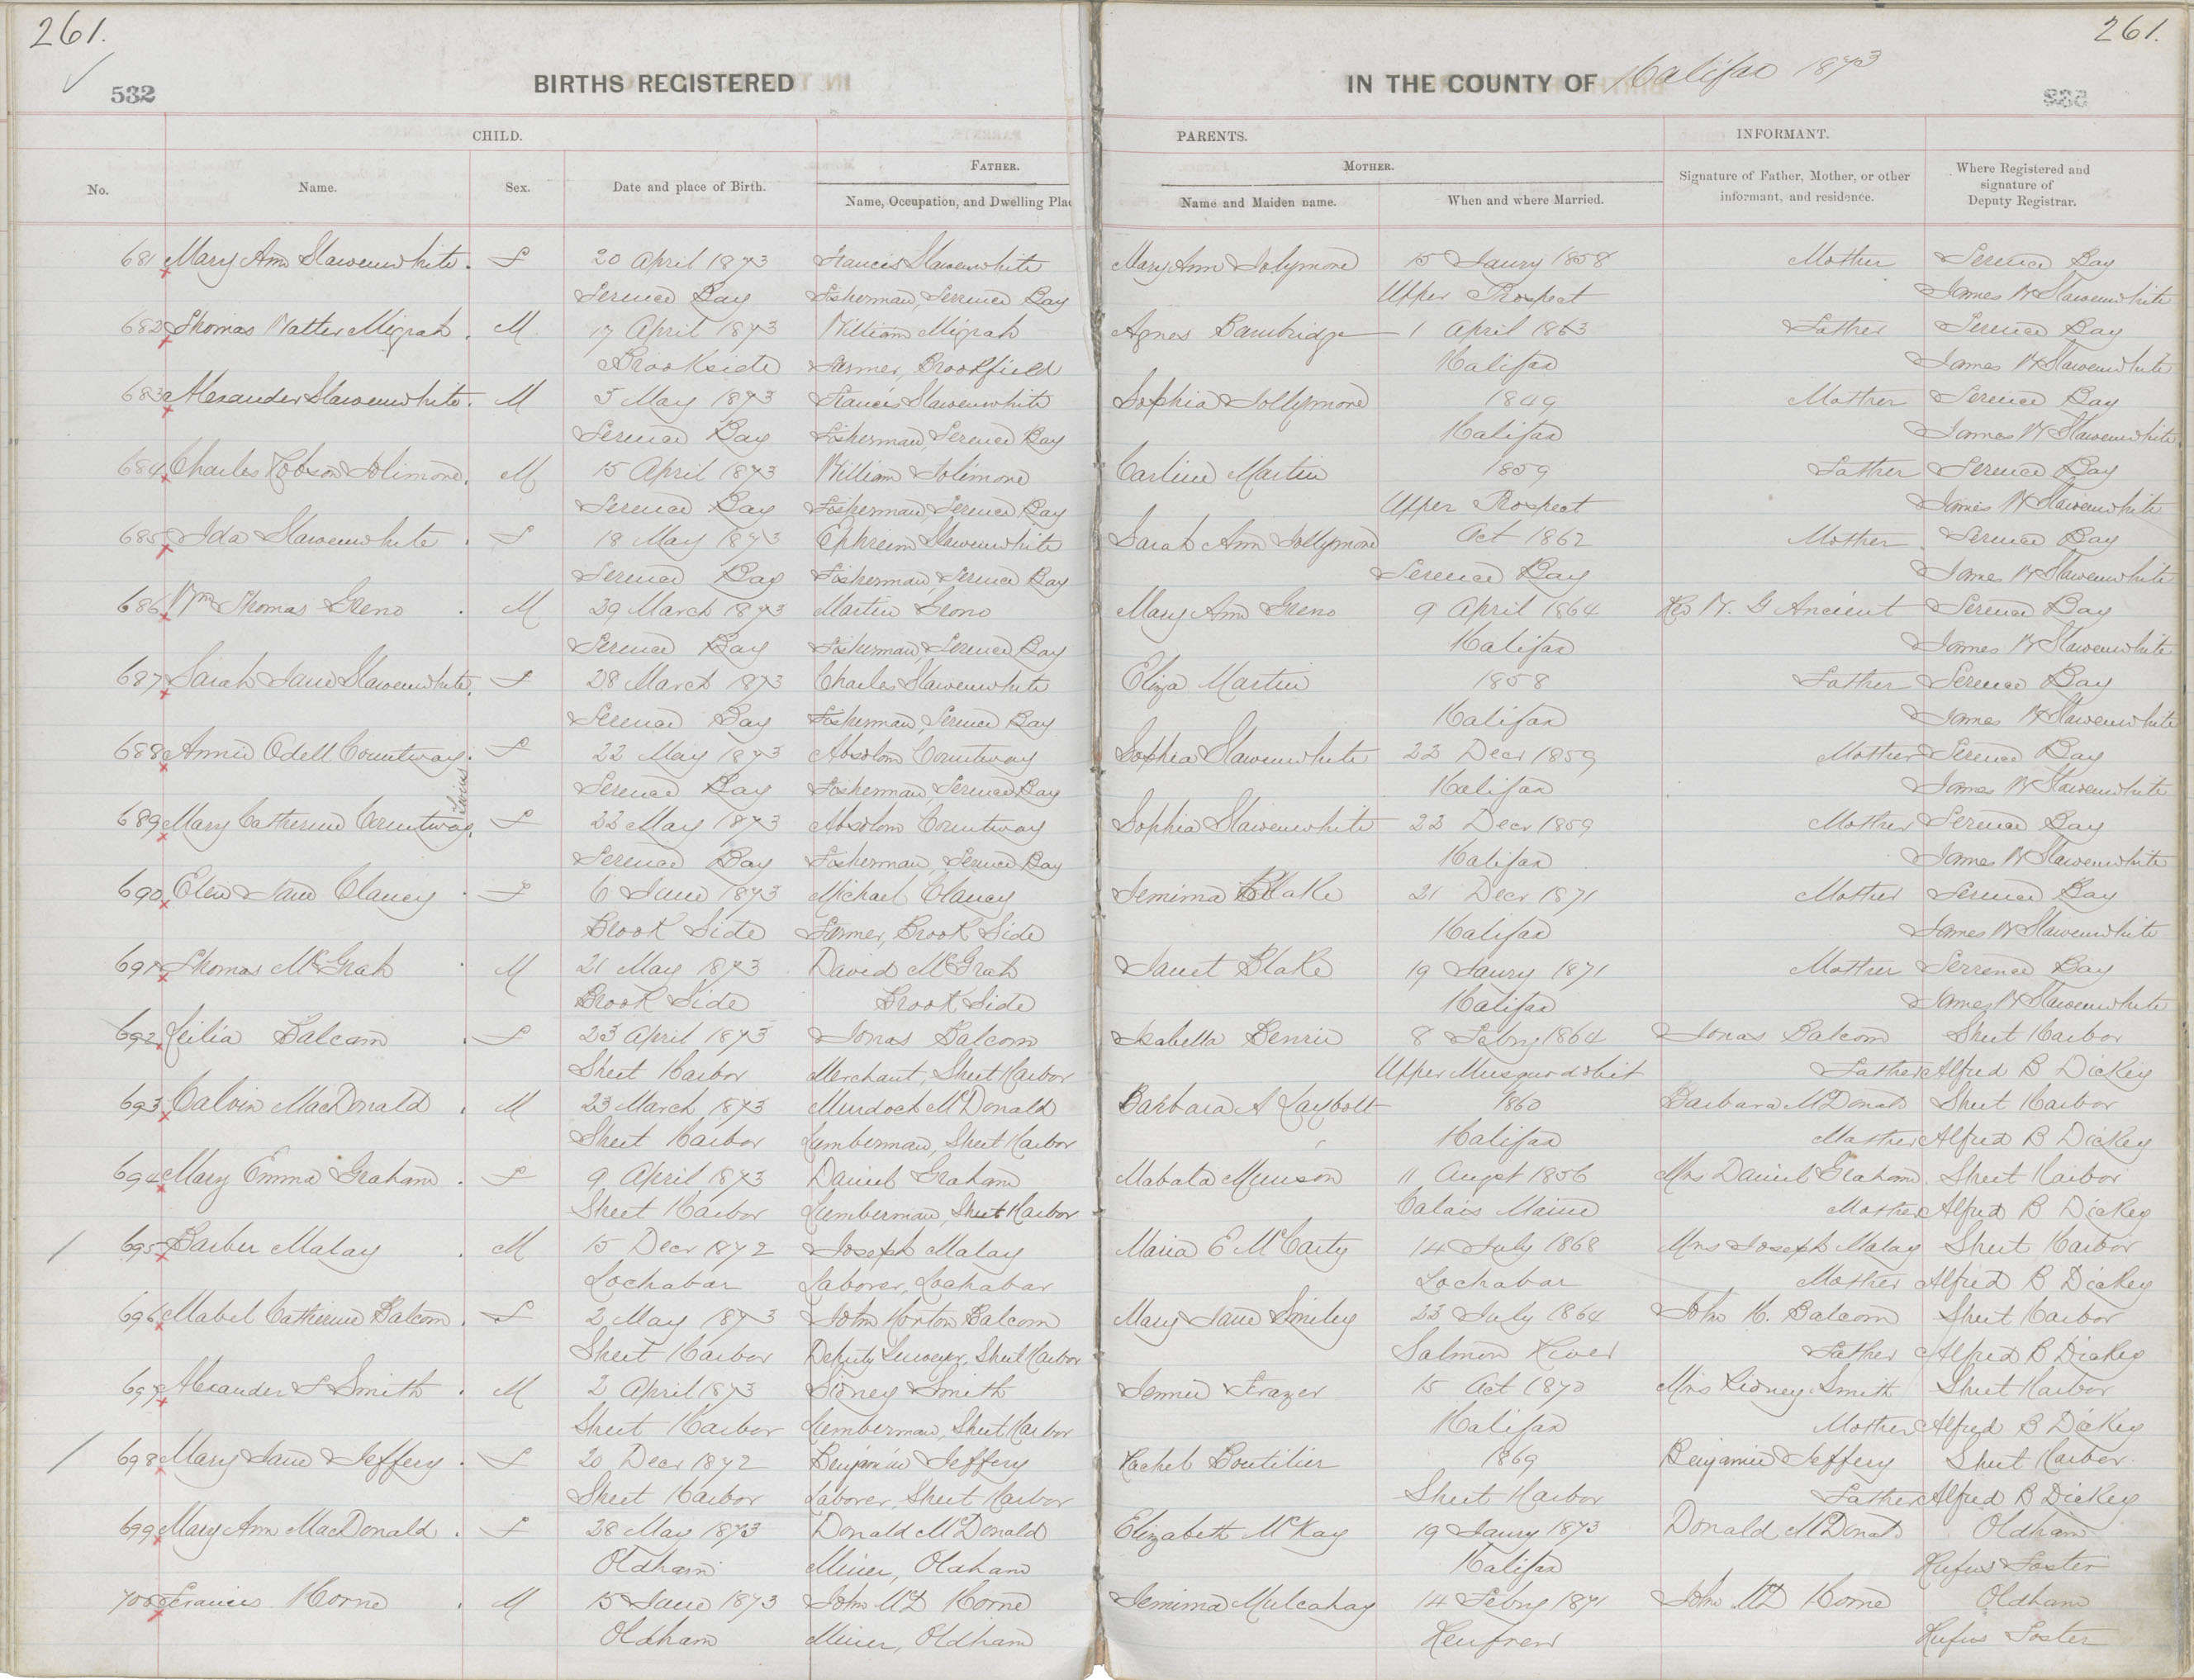 261.
261.
532
BIRTHS REGISTERED
IN THE COUNTY OF Halifax 1873
CHILD.
PARENTS.
INFORMANT.
No.
Name.
Sex.
Date and place of Birth.
FATHER.
Name, Occupation, and Dwelling Plac
MOTHER.
Name and Maiden name.
When and where Married.
Signature of Father, Mother, or other informant, and residence.
Where Registered and signature of Deputy Registrar.
681 Mary Ann Slawenwhite. F 20 April 1873 Francis Slawenwhite Mary Ann Jolymore 15 Jaury 1858 Mother Terence Bay
Terence Bay Fisherman, Terrence Bay Upper Prospect James W Slawenwhite
682 Thomas Walter Migrah. M 17 April 1873 William Migrah Agnes Bambridge 1 April 1863 Father Terence Bay
Brookside Farmer, Brookfield Halifax James W Slawenwhite
683 Alexander Slawenwhite. M 5 May 1873 Francis Slawenwhite Sophia Jollymore 1849 Mother Terence Bay
Terence Bay Fisherman, Terence Bay Halifax James W Slawenwhite
684 Charles Jobson Jolimore. M 15 April 1873 William Jolimore Carline Martin 1859 Father Terence Bay
Terence Bay Fisherman, Terence Bay Upper Prospect James W Slawenwhite
685 Ida Slawenwhite. F 18 May 1873 Ephreim Slawenwhite Sarah Ann Jollymore Oct 1862 Mother Terence Bay
Terence Bay Fisherman, Terence Bay Terence Bay James W Slawenwhite
686 Wm Thomas Greno. M 29 March 1873 Martin Greno Mary Ann Greno 9 April 1864 Rev W. G Ancient Terence Bay
Terence Bay Fisherman, Terence Bay Halifax James W Slawenwhite
687 Sarah Jane Slawenwhite. F 28 March 1873 Charles Slawenwhite Eliza Martin 1858 Father Terence Bay
Terence Bay Fisherman, Terence Bay Halifax James W Slawenwhite
688 Annie Odell Countway. F 22 May 1873 Absolom Countway Sophia Slawenwhite 22 Decr 1859 Mother Terence Bay
Terence Bay Fisherman, Terence Bay Halifax James W Slawenwhite
Twins
689 Mary Catherine Countway. F 22 May 1873 Absolom Countway Sophia Slawenwhite 22 Decr 1859 Mother Terence Bay
Terence Bay Fisherman, Terence Bay Halifax James W Slawenwhite
690 Elen Jane Clancy. F 6 June 1873 Michael Clancy Jemima Blake 21 Decr 1871 Mother Terence Bay
Brook Side Farmer, Brook Side Halifax James W Slawenwhite
691 Thomas McGrah. M 21 May 1873 David McGrah Janet Blake 19 Jaury 1871 Mother Terrence Bay
Brook Side Brook Side Halifax James W Slawenwhite
692 Ceilia Balcam. F 23 April 1873 Jonas Balcom Isabella Benvie 8 Febry 1864 Jonas Balcom Sheet Harbor
Sheet Harbor Merchant, Sheet Harbor Upper Musquodobit Father Alfred B Dickey
693 Calvin MacDonald. M 23 March 1873 Murdoch McDonald Barbara A Laybolt 1860 Barbara McDonald Sheet Harbor
Sheet Harbor Lumberman, Sheet Harbor Halifax Mother Alfred B Dickey
694 Mary Emma Graham. F 9 April 1873 Daniel Graham Mabala Munson 11 Augst 1856 Mrs Daniel Graham Sheet Harbor
Sheet Harbor Lumberman, Sheet Harbor Calais Maine Mother Alfred B Dickey
695 Barber Malay. M 15 Decr 1872 Joseph Malay Maria E McCarty 14 July 1868 Mrs Joseph Malay Sheet Harbor
Lochabar Laborer, Lochabar Lochabar Mother Alfred B Dickey
696 Mabel Catherine Balcom. F 2 May 1873 John Horton Balcom Mary Jane Smiley 23 July 1864 John H. Balcom Sheet Harbor
Sheet Harbor Deputy Surveyor, Sheet Harbor Salmon River Father Alfred B Dickey
697 Alexander F Smith. M 2 April 1873 Sidney Smith Jennie Frazer 15 Oct 1870 Mrs Sidney Smith Sheet Harbor
Sheet Harbor Lumberman, Sheet Harbor Halifax Mother Alfred B Dickey
698 Mary Jane Jeffery. F 20 Decr 1872 Benjamin Jeffery Rachel Boutilier 1869 Benjamin Jeffery Sheet Harbor
Sheet Harbor Laborer, Sheet Harbor Sheet Harbor Father Alfred B Dickey
699 Mary Ann MacDonald. F 28 May 1873 Donald McDonald Elizabeth McKay 19 Jaury 1873 Donald McDonald Oldham
Oldham Miner, Oldham Halifax Rufus Foster
700 Francis Horne. M 15 June 1873 John McD Horne Jemima Mulcahay 14 Febry 1871 John McD Horne Oldham
Oldham Miner, Oldham Renfrew Rufus Foster